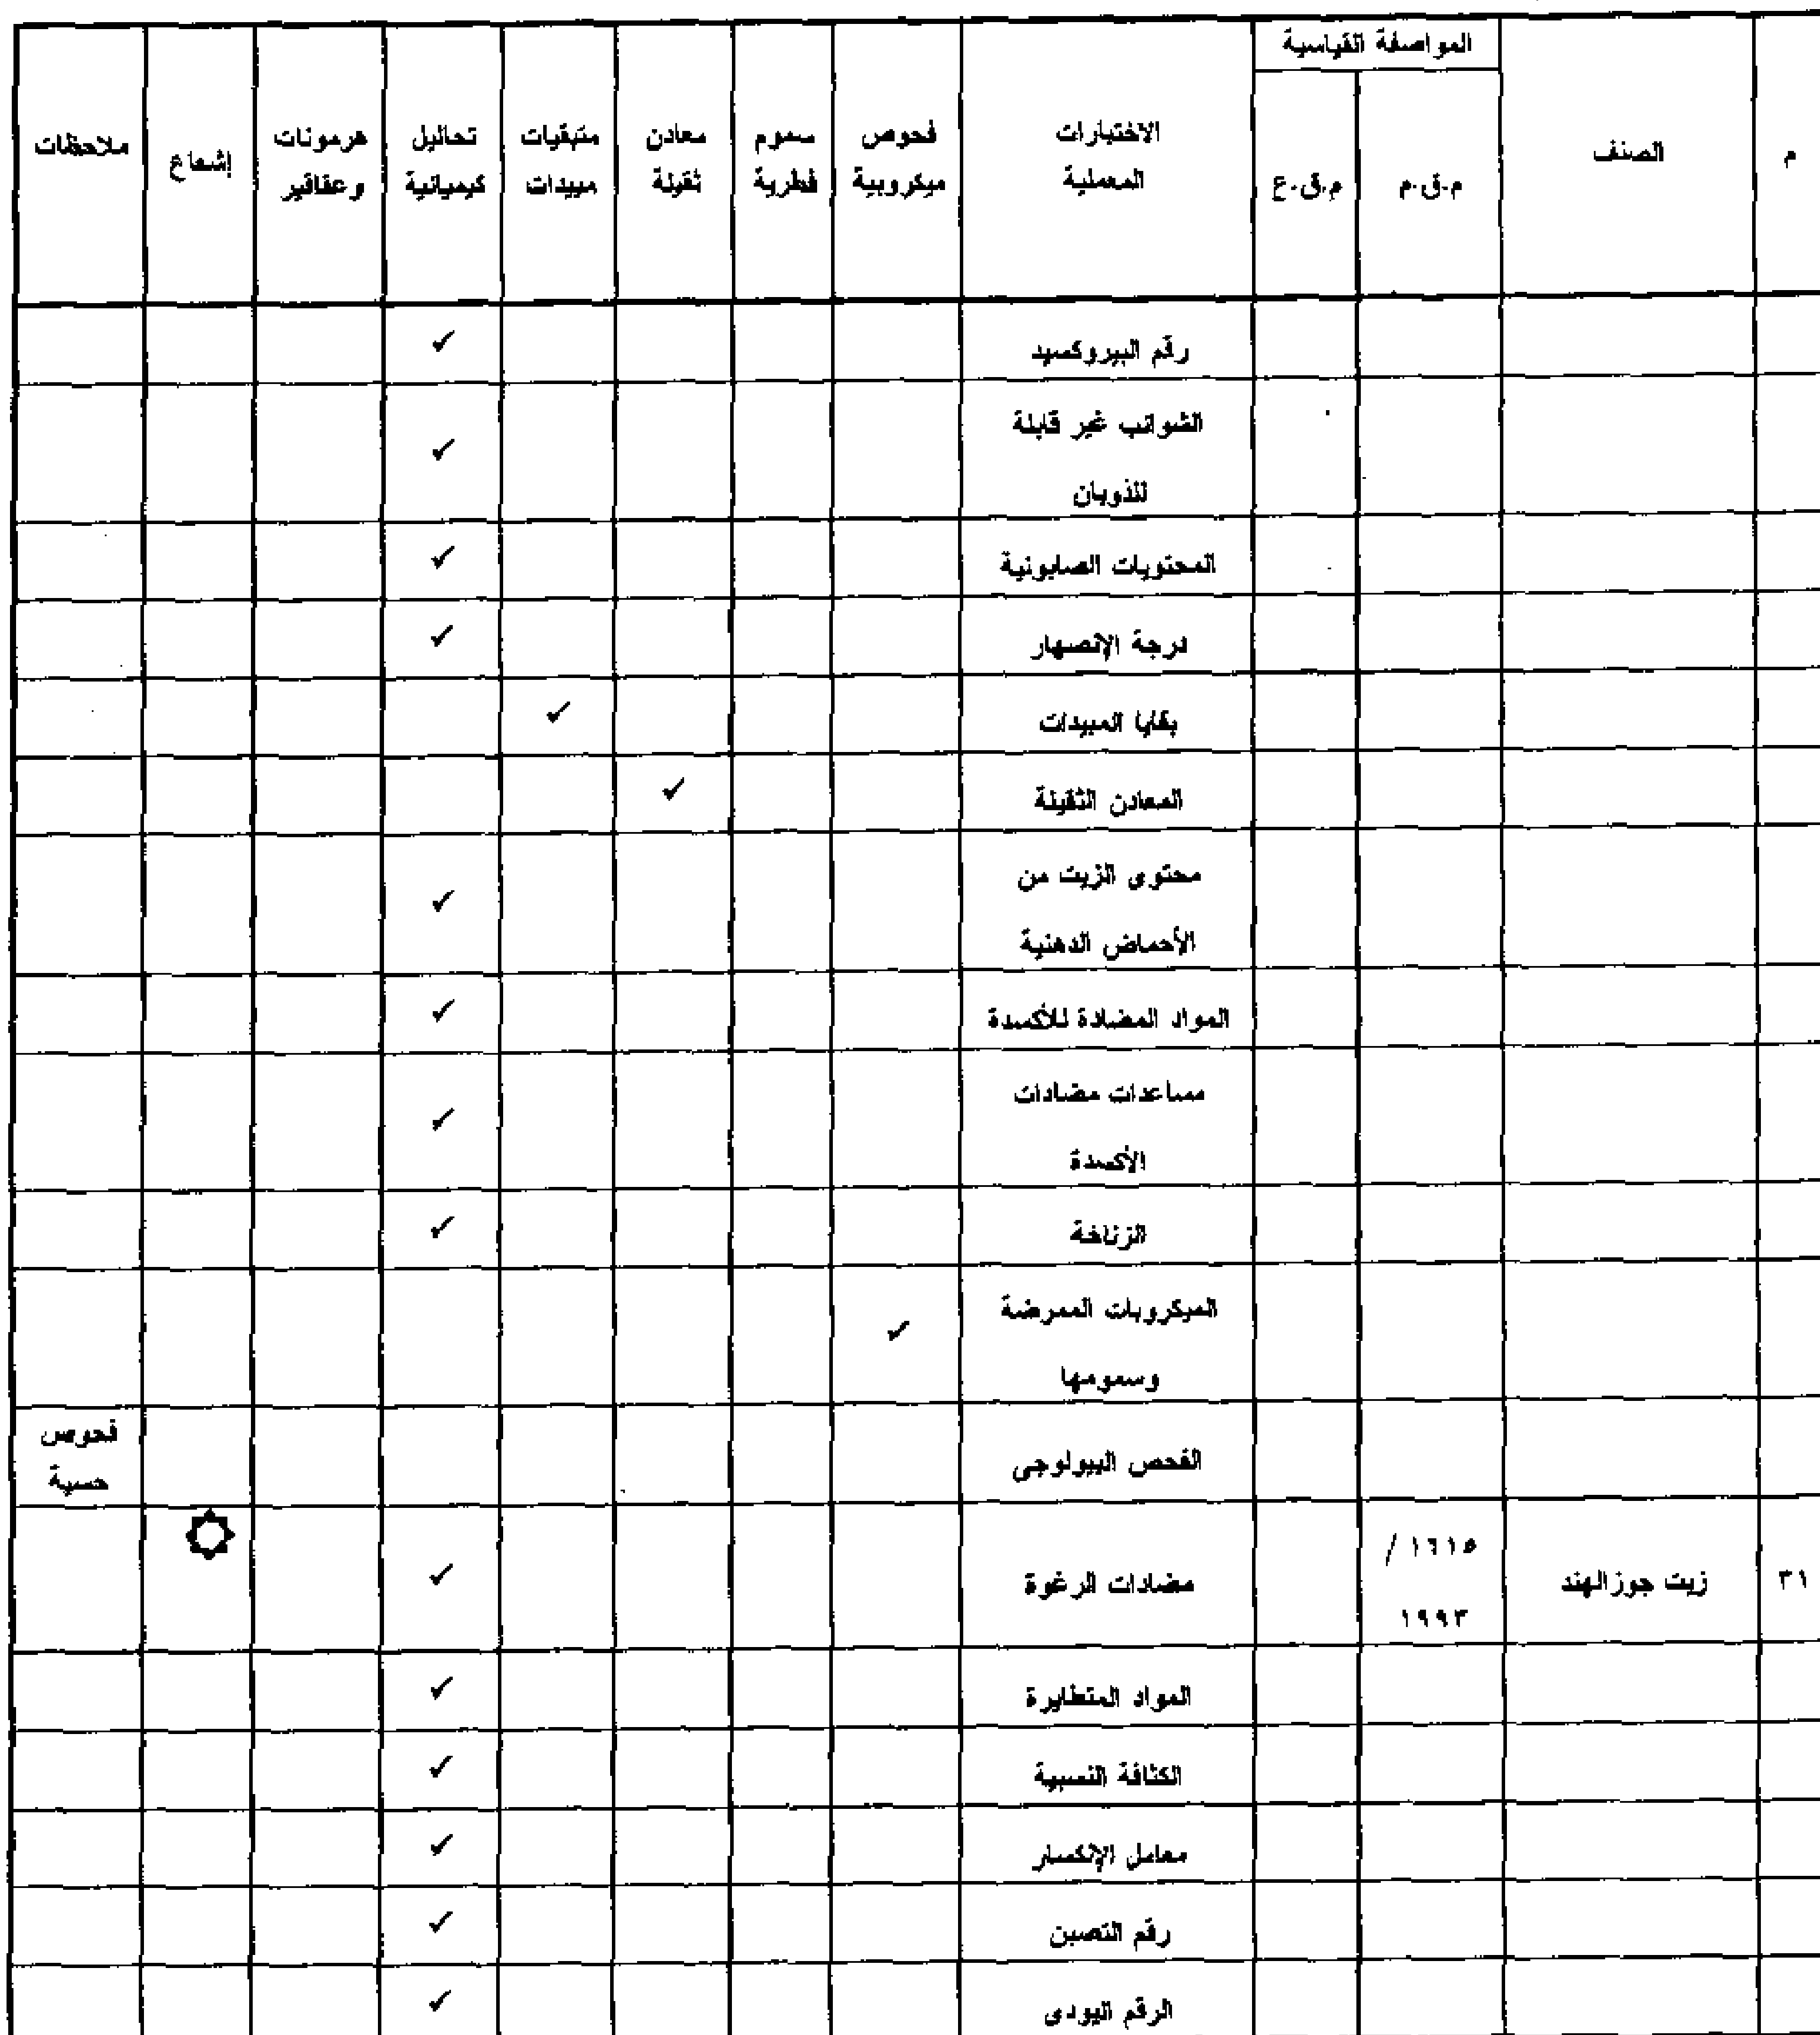 م
الصنف
المواصفة القياسية
م.ق.م
م.ق.ع
الاختبارات
المعملية
فحوص
ميكروبية
سموم
فطرية
معادن
ثقيلة
متبقيات
مبيدات
تحاليل
كيميائية
هرمونات
وعقاقير
إشعاع
ملاحظات
رقم البيروكسيد ✓
الشوائب غير قابلة
للذوبان ✓
المحتويات الصابونية ✓
درجة الإنصهار ✓
بقايا المبيدات ✓
المعادن الثقيلة ✓
محتوى الزيت من
الأحماض الدهنية ✓
المواد المضادة للأكسدة ✓
مساعدات مضادات
الأكسدة ✓
الزناخة ✓
الميكروبات الممرضة
وسمومها ✓
الفحص البيولوجى
فحوص
حسية
٣١
زيت جوزالهند
١٦١٥ /
١٩٩٣
مضادات الرغوة ✓
المواد المتطايرة ✓
الكثافة النسبية ✓
معامل الإنكسار ✓
رقم التصبن ✓
الرقم اليودى ✓